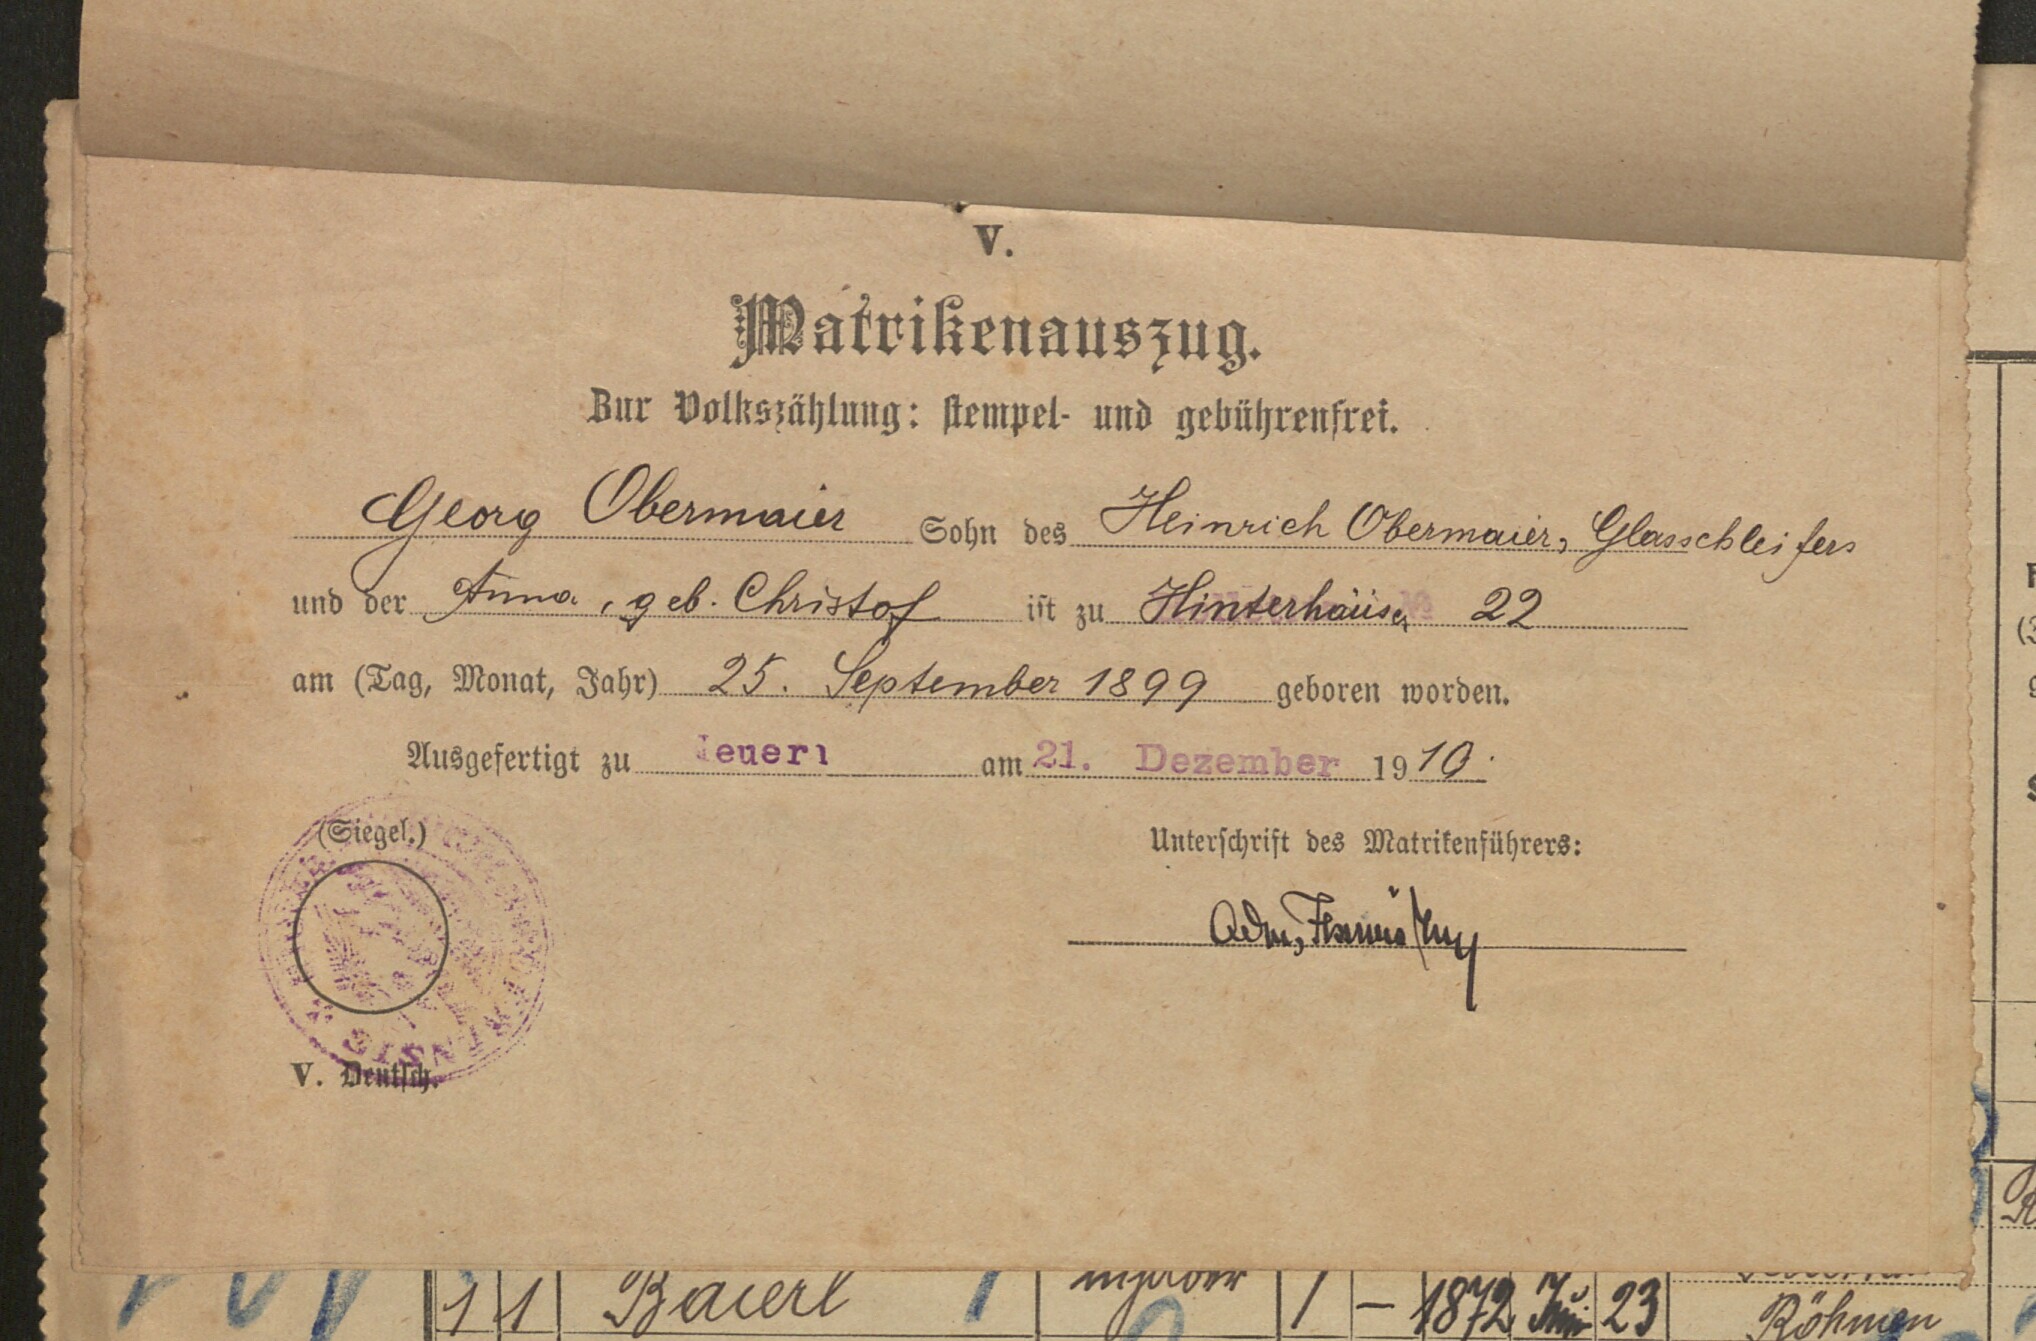 V.
Matrikenauszug.
Zur Volkszählung: stempel- und gebührenfrei.
Georg Obermaier Sohn des Heinrich Obermaier, Glasschleifers
und der Anna, geb. Christof ist zu Hinterhäuser 22
am (Tag, Monat, Jahr) 25. September 1899 geboren worden.
Ausgefertigt zu euern am 21. Dezember 1910.
(Siegel.)
Unterschrift des Matrikenführers:
V. Deutsch.
1 1 Baierl 1 - 1872 Juni 23
Böhmen